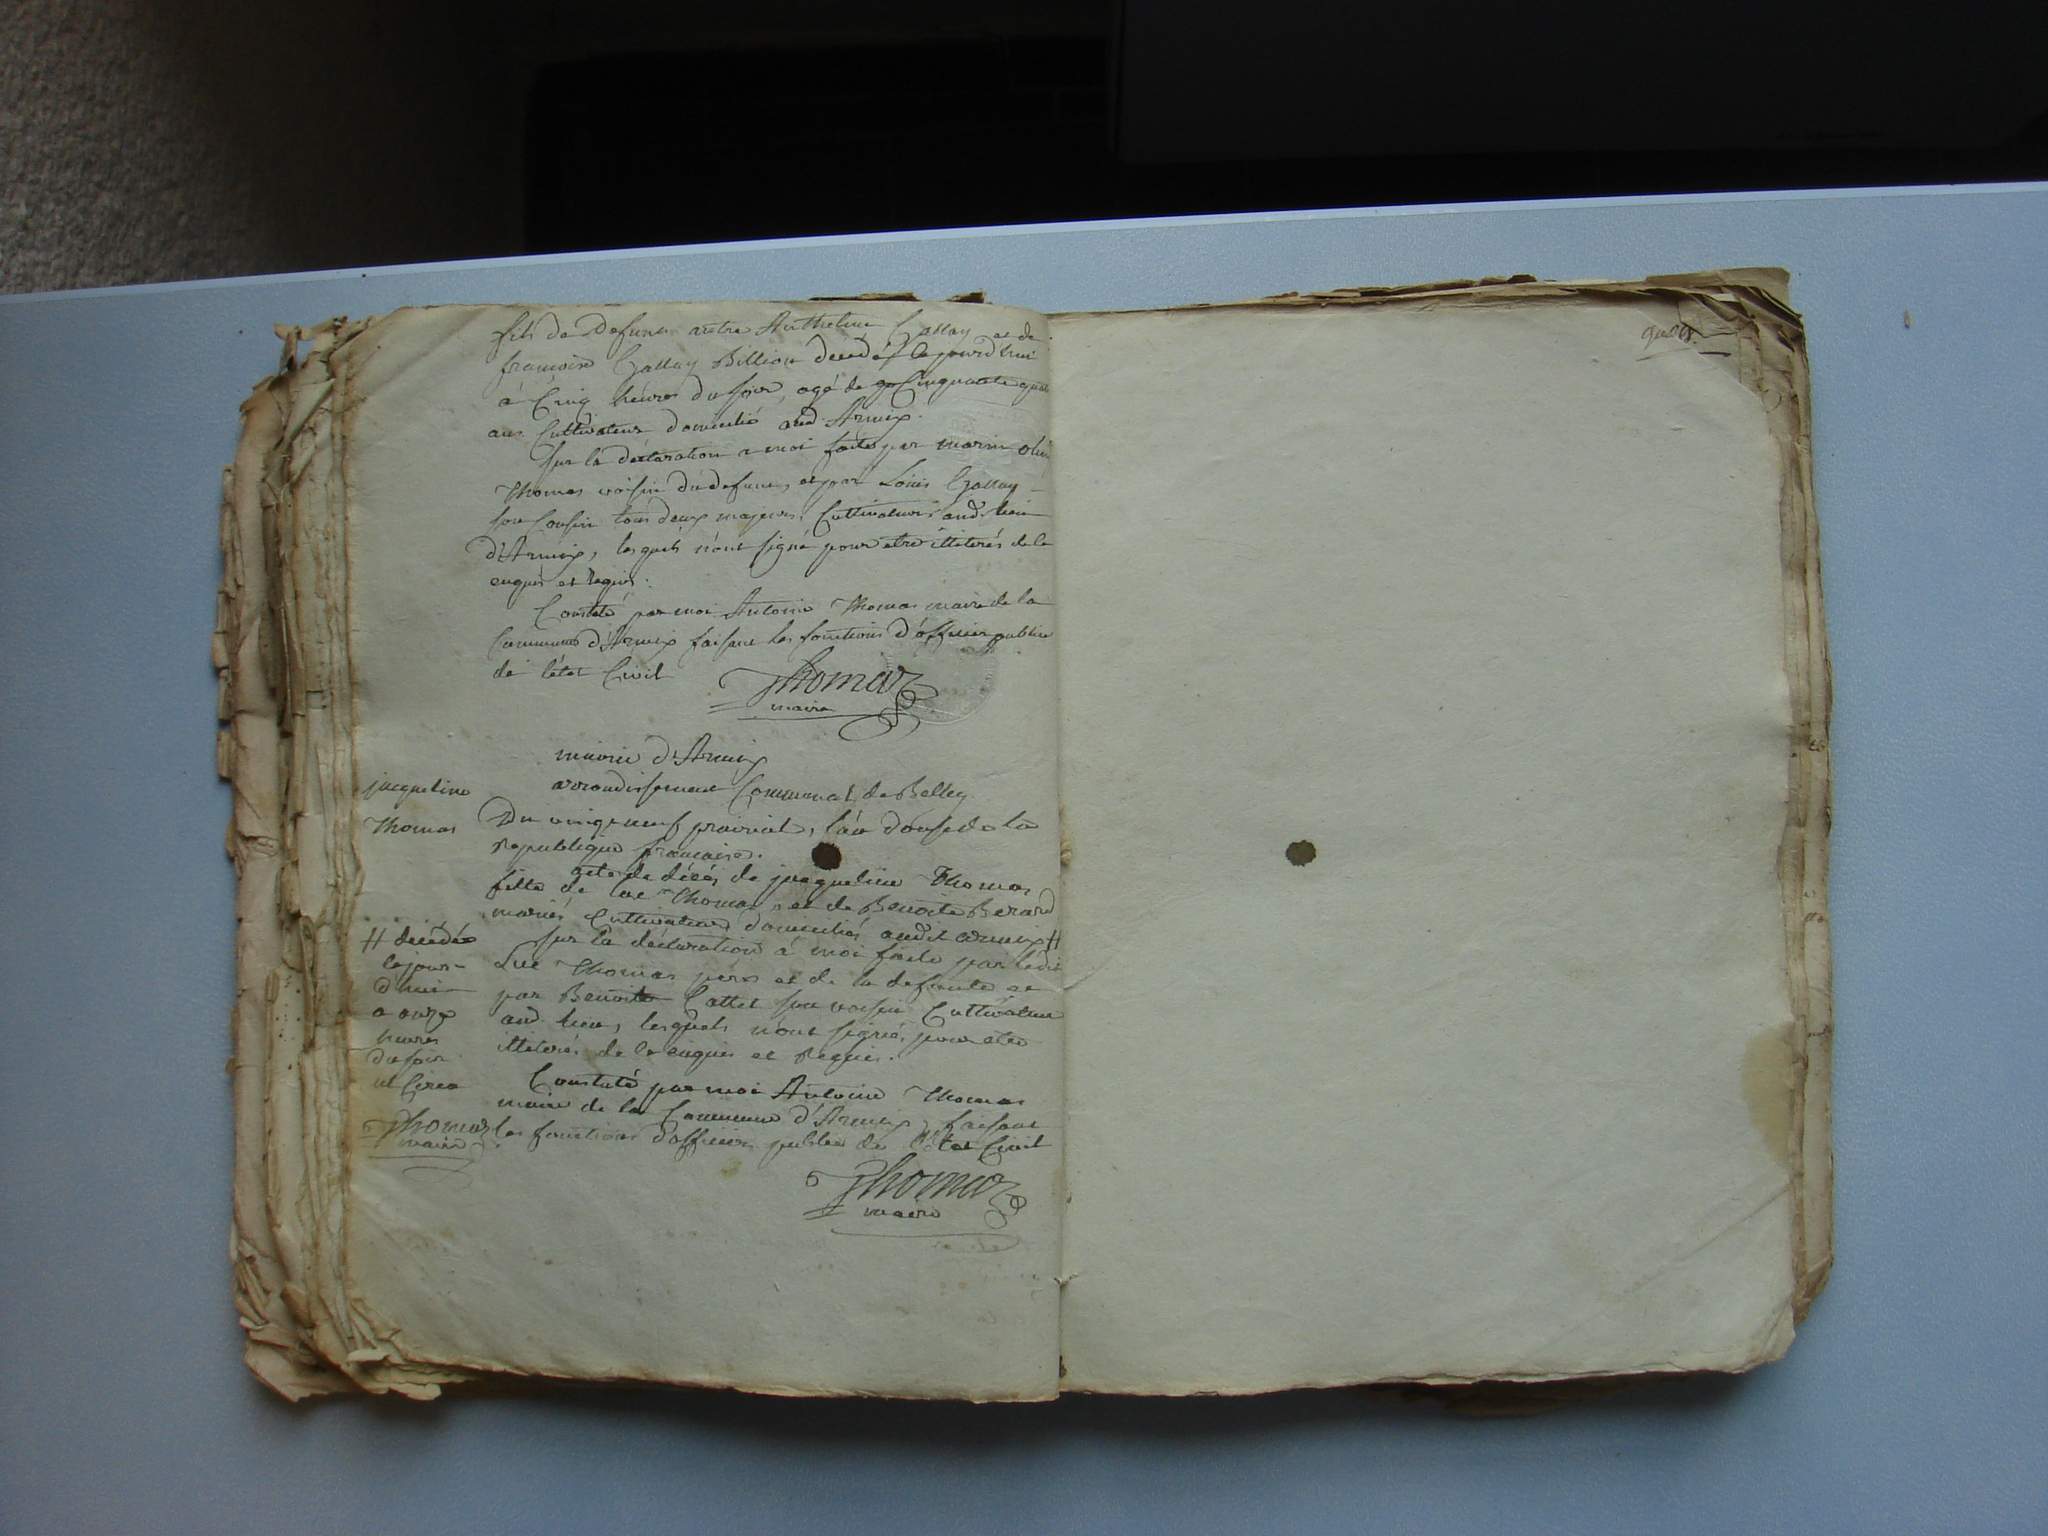 fils de defunt autre Anthelme Gallay et de
françoise Gallay Billion decedé le jourd'hui
à Cinq heures du soir, agé de Cinquante quatre
ans Cultivateur domicilié aud. Armix.
Sur la déclaration a moi faite par marin
Thomas voisin du defunt, et par Louis Gallay
son Cousin tous deux majeurs, Cultivateurs aud. lieu
d'Armix, lesquels n'ont signé pour etre illiterés de ce
enquis et requis.
Constaté par moi Antoine Thomas maire de la
Commune d'Armix faisant les fonctions d'officier public
de l'état Civil
Thomas
maire
mairie d'Armix
arrondissement Communal de Belley
jacqueline
Thomas
Du vingt neuf prairial, l'an douse de la
republique française.
acte de décés de jacqueline Thomas
fille de luc Thomas, et de Benoite Berard
mariés Cultivateurs domiciliés audit armix #
Sur la déclaration à moi faite par ledit
Luc Thomas pere de la defunte et
par Benoit Cattet son voisin Cultivateur
aud. lieu, lesquels n'ont signés, pour etre
illiterés de ce enquis et Requis.
Constaté par moi Antoine Thomas
maire de la Commune d'Armix, faisant
les fonctions d'officier public de l'état Civil
# decédée
le jour-
d'hui
a onze
heures
du soir
Thomas
maire
Thomas
maire